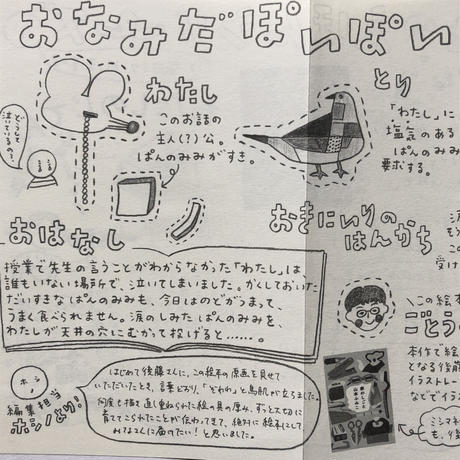 おなみだぽいぽい
わたし
このお話の
主人(?)公。
ぱんのみみがすき。
どうして
泣いているの?
とり
「わたし」に
塩気のある
ぱんのみみ
要求する。
おきにいりの
はんかち
おはなし
授業で先生の言うことがわからなかった「わたし」は、
誰もいない場所で、泣いてしまいました。かくしておいた
だいすきな ぱんのみみも、今日はのどがつまって、
うまく食べられません。涙のしみた ぱんのみみを、
わたしが天井の穴にむかって投げると……。
この絵本
ごとう
本作で絵
となる後藤
イラストレー
などでイラ
ホシ
編集担当
ホシノより!
はじめて後藤さんに、この絵本の原画を見せて
いただいたとき、言葉どおり、「ぞわわ」と鳥肌が立ちました。
何度も描き直し重ねられた絵の具の厚み、ずっと大切に
育ててこられたことが伝わってきて、絶対に絵本にして、
みなさんに届けたい!と思いました。
ミシマ
も、後